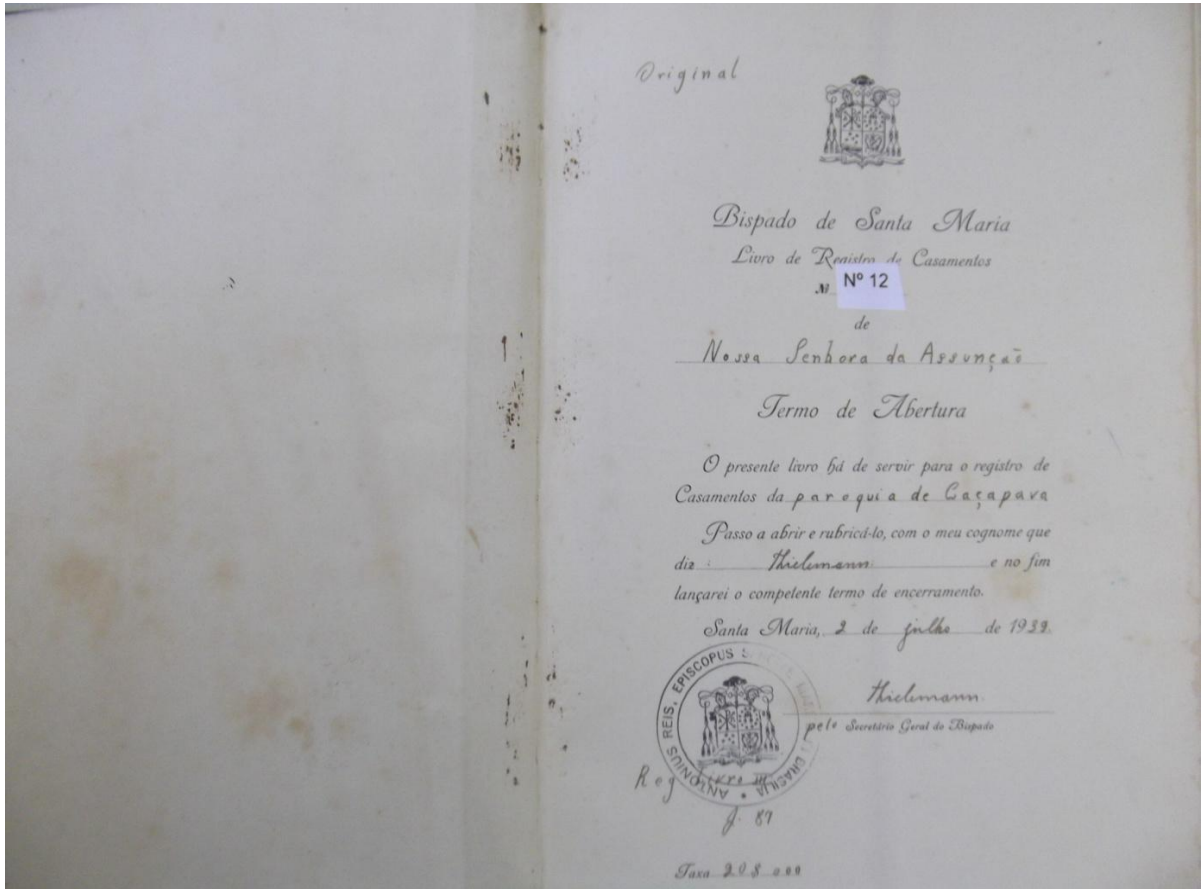 Original
Bispado de Santa Maria
Livro de Registro de Casamentos
Nº 12
de
Nossa Senhora da Assunção
Termo de Abertura
O presente livro há de servir para o registro de
Casamentos da paroquia de Caçapava
Passo a abrir e rubricá-lo, com o meu cognome que
diz : Thielemann e no fim
lançarei o competente termo de encerramento.
Santa Maria, 2 de julho de 1939.
Thielemann
pelo Secretário Geral do Bispado
ANTONIUS REIS, EPISCOPUS BRASILIA
Reg Livro III
f. 87
Taxa 20$000